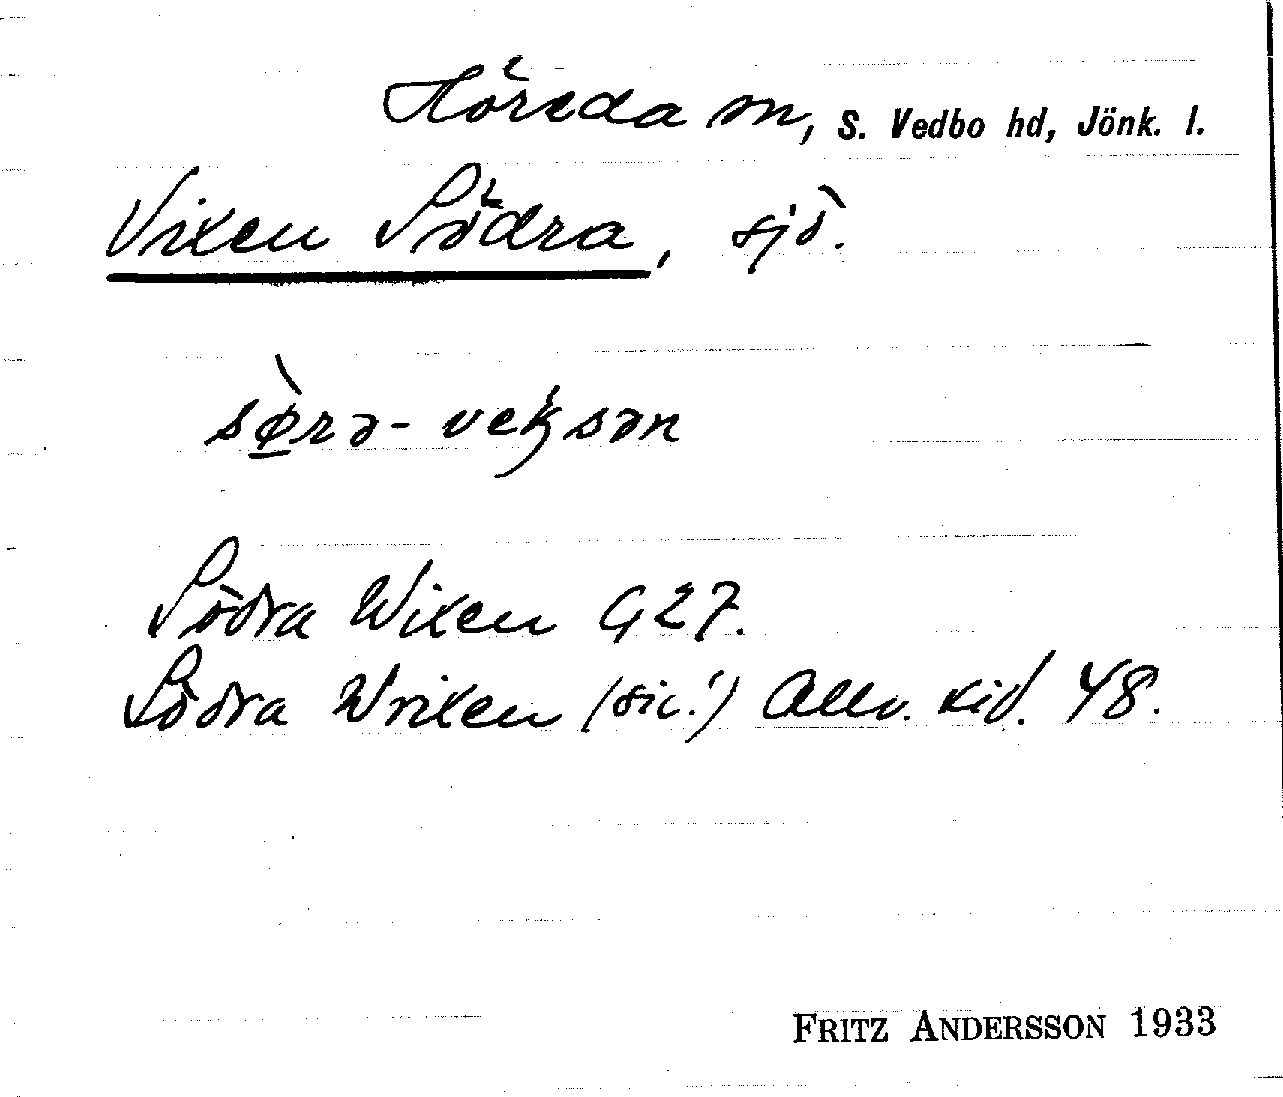 Höreda sn, S. Vedbo hd, Jönk. l.
Vixen Södra, sjö.
sø̱̀rə- vek̓sən
Södra Wixen G 27.
Södra Wrixen (sic!) Allv. kid. 48.
FRITZ ANDERSSON 1933